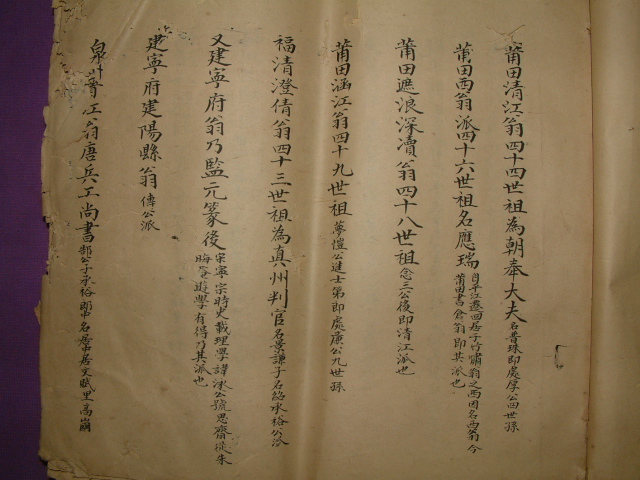 莆田清江翁四十四世祖為朝奉大夫名普珠即處厚公四世孫
莆田西翁派四十六世祖名應瑞
自平江遷回居于竹嘯翁之西因名西翁今
莆田書倉翁即其派也
莆田遮浪深瀆翁四十八世祖念三公後即清江派也
莆田涵江翁四十九世祖夢愷公進士第即處廉公九世孫
福清澄倩翁四十三世祖為真州判官名景謙子名紹承裕公派
又建寧府翁乃監元篆後
宋寧宗時史載理學諱泳公號思齋從朱
晦菴遊學有得乃其派也
建寧府建陽縣翁傳公派
泉州晉江翁唐兵工尚書郜公子承裕郎中名居中居文賦里高